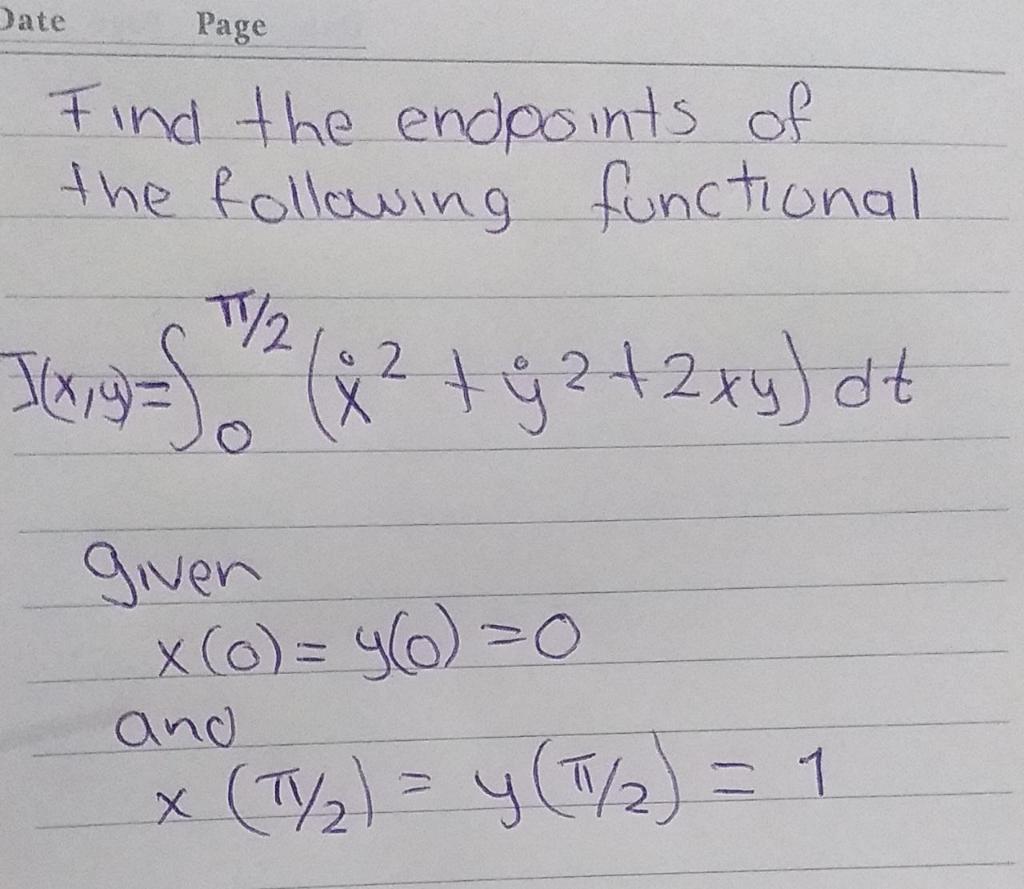 Date Page
Find the endpoints of
the following functional
J(x,y)=∫₀^{π/2} (ẋ² + ẏ² + 2xy) dt
given
x(0) = y(0) = 0
and
x(π/2) = y(π/2) = 1